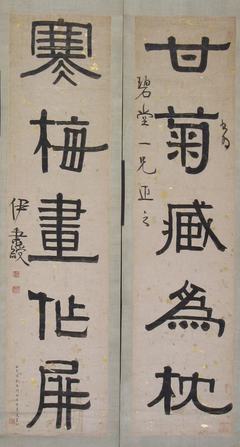 甘菊臧爲枕
碧堂一兄正之
寒梅畫作屏
伊秉綬